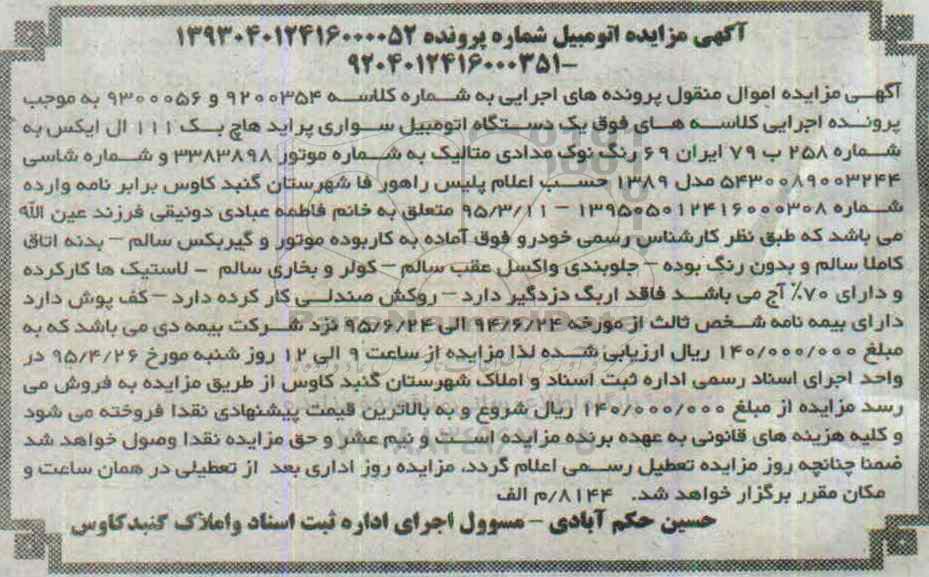 آگهی مزایده اتومبیل شماره پرونده ۱۳۹۳۰۴۰۱۲۴۱۶۰۰۰۰۵۲
-۹۲۰۴۰۱۲۴۱۶۰۰۰۳۵۱
آگهـی مزایده اموال منقول پرونده های اجرایی به شماره کلاسه ۹۲۰۰۳۵۴ و ۹۳۰۰۰۵۶ به موجب
پرونده اجرایی کلاسه های فوق یک دستگاه اتومبیل سواری پراید هاچ بک ۱۱۱ ال ایکس به
شماره ۲۵۸ ب ۷۹ ایران ۶۹ رنگ نوک مدادی متالیک به شماره موتور ۳۳۸۳۸۹۸ و شماره شاسی
۵۴۳۰۰۸۹۰۰۳۲۴۴ مدل ۱۳۸۹ حسب اعلام پلیس راهور فا شهرستان گنبد کاوس برابر نامه وارده
شماره ۱۳۹۵۰۵۰۱۲۴۱۶۰۰۰۳۰۸ – ۹۵/۳/۱۱ متعلق به خانم فاطمه عبادی دونیقی فرزند عین الله
می باشد که طبق نظر کارشناس رسمی خودرو فوق آماده به کاربوده موتور و گیربکس سالم – بدنه اتاق
کاملا سالم و بدون رنگ بوده – جلوبندی واکسل عقب سالم – کولر و بخاری سالم - لاستیک ها کارکرده
و دارای ۷۰٪ آج می باشد فاقد اربگ دزدگیر دارد – روکش صندلی کار کرده دارد – کف پوش دارد
دارای بیمه نامه شخص ثالث از مورخه ۹۴/۶/۲۴ الی ۹۵/۶/۲۴ نزد شرکت بیمه دی می باشد که به
مبلغ ۱۴۰/۰۰۰/۰۰۰ ریال ارزیابی شده لذا مزایده از ساعت ۹ الی ۱۲ روز شنبه مورخ ۹۵/۴/۲۶ در
واحد اجرای اسناد رسمی اداره ثبت اسناد و املاک شهرستان گنبد کاوس از طریق مزایده به فروش می
رسد مزایده از مبلغ ۱۴۰/۰۰۰/۰۰۰ ریال شروع و به بالاترین قیمت پیشنهادی نقدا فروخته می شود
و کلیه هزینه های قانونی به عهده برنده مزایده است و نیم عشر و حق مزایده نقدا وصول خواهد شد
ضمنا چنانچه روز مزایده تعطیل رسمی اعلام گردد، مزایده روز اداری بعد از تعطیلی در همان ساعت و
مکان مقرر برگزار خواهد شد. ۸۱۴۴/م الف
حسین حکم آبادی – مسوول اجرای اداره ثبت اسناد واملاک گنبدکاوس